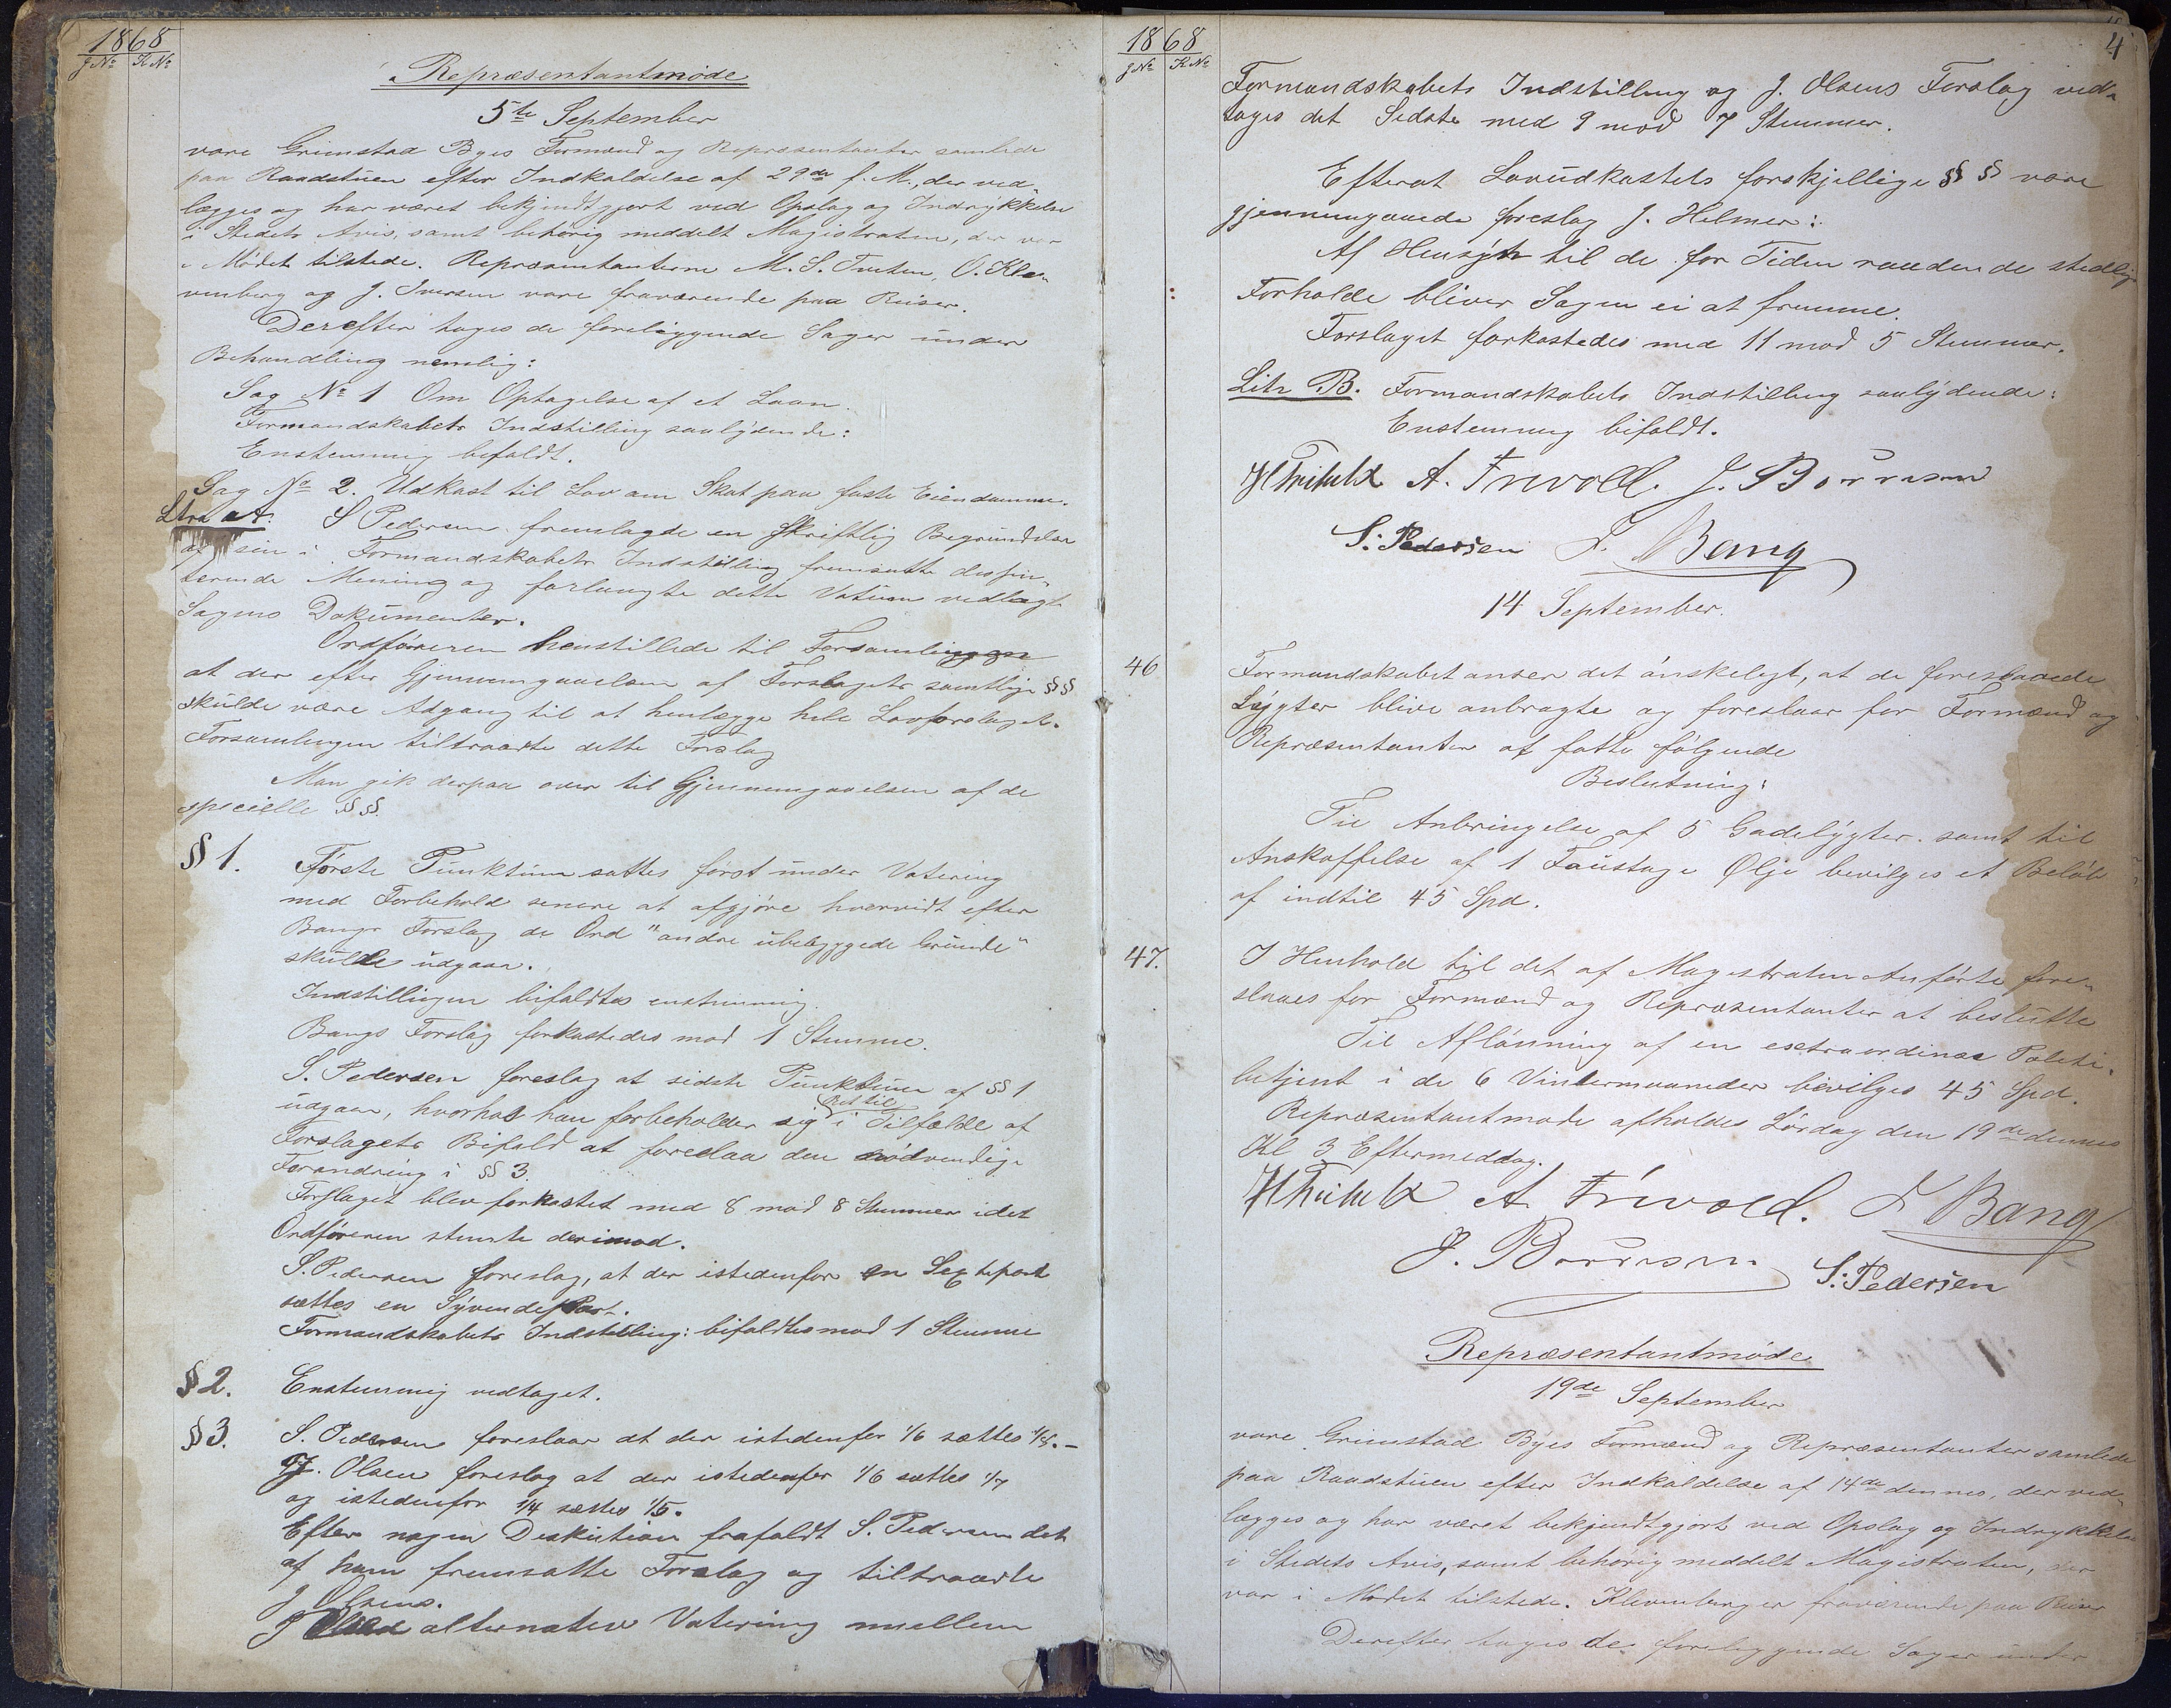 1868
J No K No
Repræsentantmöde
5te September
vare Grimstad Byes Formænd og Repræsentanter samlede
paa Raadstüen efter Indkaldelse af 29de f. M., der ved-
lægges og har været bekjendtgjort ved Opslag og Indrykkelse
i Stedets Avis, samt behörig meddelt Magistraten, der var
i Mödet tilstede. Repræsentanterne M. S. Tveten, O. Kle-
venberg og J. Iversen vare fraværende paa Reiser.
Derefter toges de foreliggende Sager ünder
Behandling nemlig:
Sag No 1 Om Optagelse af et Laan.
Formandskabets Indstilling saalÿdende:
Enstemmig bifaldt.
Sag No 2. Udkast til Lov om Skat paa faste Eiendomme.
Litra A. S Pedersen fremlagde en skriftlig Begrundelse
af sin i Formandskabets Indstilling fremsatte dissin-
terende Mening og forlangte dette Votüm vedlagt
Sagens Dokümenter.
Ordföreren henstillede til Forsamlingen
at der efter Gjennemgaaelsen af Forslagets samtlige §§
skülde være Adgang til at henlægge hele Lovforslaget.
Forsamlingen tiltraadte dette Forslag
Man gik derpaa over til Gjennemgaaelsen af de
specielle §§.
§ 1. Förste Pünktüm sattes först ünder Votering
med Forbehold senere at afgjöre hvorvidt efter
Bangs Forslag de Ord "andre übebÿggede Gründe"
skülde üdgaa.
Indstillingen bifaldtes enstemmig.
Bangs Forslag forkastedes mod 1 Stemme.
S. Pedersen foreslog at sidste Pünktüm af § 1
üdgaar, hvorhos han forbeholder sig Ret til i Tilfælde af
Forslagets Bifald at foreslaa den nödvendige
Forandring i § 3.
Forslaget blev forkastet med 8 mod 8 Stemmer idet
Ordföreren stemte derimod.
S. Pedersen foreslog, at der istedenfor en Sextepart
sættes en SÿvendePart.
Formandskabets Indstilling: bifaldtes mod 1 Stemme
§ 2. Enstemmig vedtaget.
§ 3. S. Pedersen foreslaar at der istedenfor 1/6 sættes 1/5.-
J. Olsen foreslog at der istedenfor 1/6 sættes 1/7
og istedenfor 1/4 sættes 1/5.
Efter nogen Diskütion frafaldt S. Pedersen det
af ham fremsatte Forslag og tiltraadte
J Olsens.
J alternativ Votering mellem
1868
J No K No
4
Formandskabets Indstilling og J. Olsens Forslag ved-
toges det Sidste med 9 mod 7 Stemmer.
Efterat Lovüdkastets forskjellige §§ vare
gjennemgaaede foreslog J. Helmer:
Af Hensÿn til de for Tiden raadende stedlige
Forholde bliver Sagen ei at fremme.
Forslaget forkastedes med 11 mod 5 Stemmer.
Litr B. Formandskabets Indstilling saalÿdende:
Enstemmig bifaldt.
A. Trevold. J. Borresen
S. Pedersen F. Bang
14 September.
46 Formandskabet anser det önskeligt, at de foreslaaede
Lÿgter blive anbragte og foreslaar for Formænd og
Repræsentanter at fatte fölgende
Beslutning:
Til Anbringelse af 5 Gadelÿgter samt til
Anskaffelse af 1 Faüstage Olje bevilges et Belöb
af indtil 45 Spd.
47. I Henhold til det af Magistraten Anförte fore-
slaaes for Formænd og Repræsentanter at beslutte
Til Aflönning af en extraordinær Politi-
betjent i de 6 Vintermaaneder bevilges 45 Spd.
Repræsentantmöde afholdes Lördag den 19de dennes
Kl 3 Eftermiddag.
A. Trevold. F Bang
J. Borresen S. Pedersen
Repræsentantmöde
19de September
vare Grimstad Byes Formænd og Repræsentanter samlede
paa Raadstüen efter Indkaldelse af 14de dennes, der ved-
lægges og har været bekjendtgjort ved Opslag og Indrykkelse
i Stedets Avis, samt behörig meddelt Magistraten, der
var i Mödet tilstede. Klevenberg er fraværende paa Reiser
Derefter toges de foreliggende Sager ünder